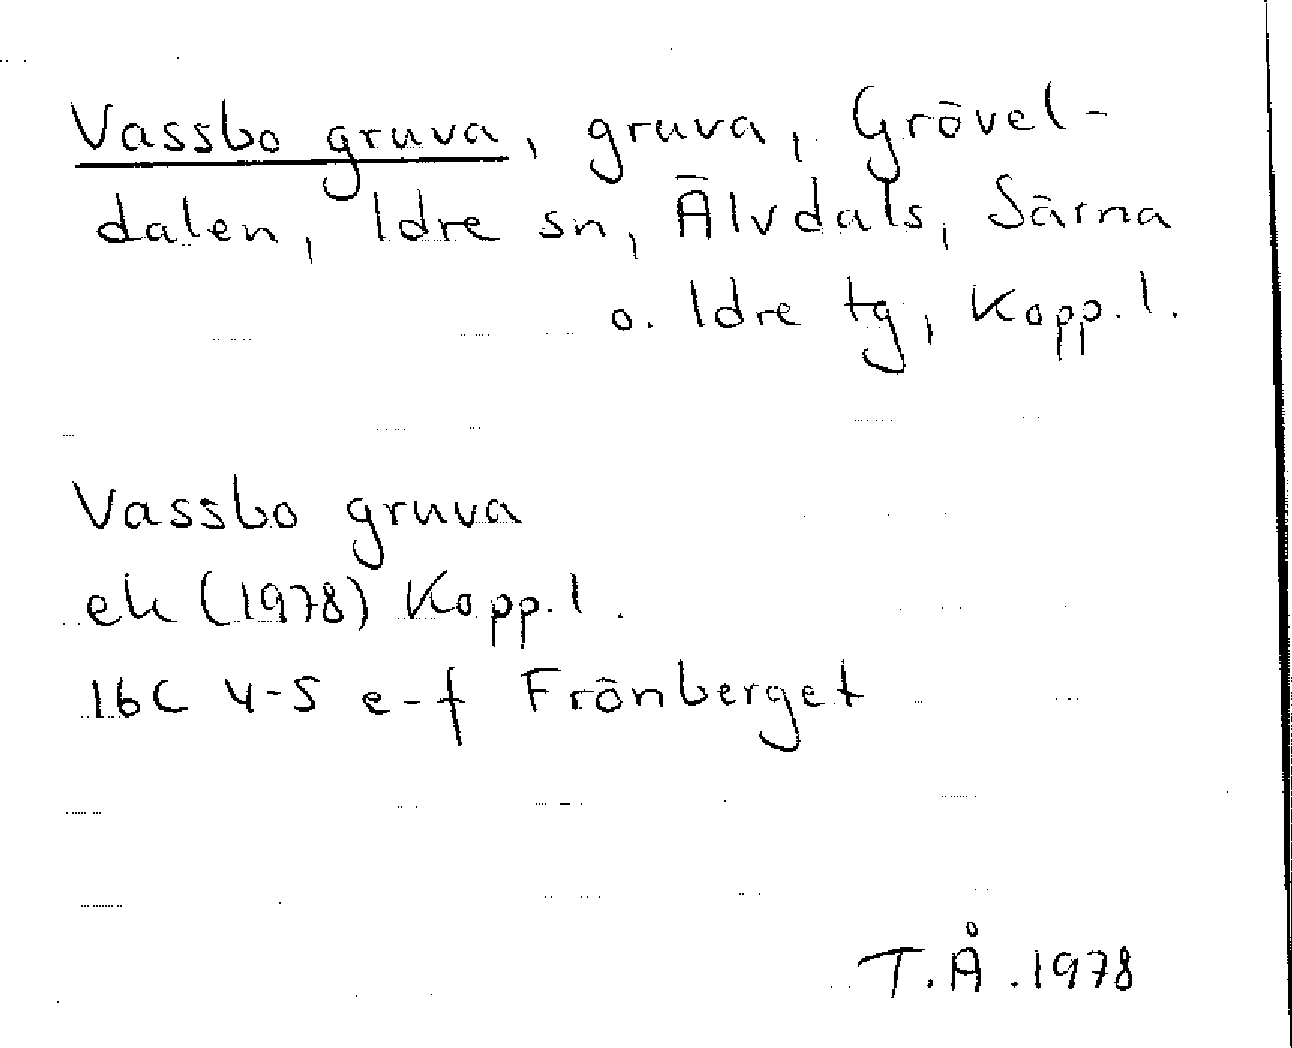 Vassbo gruva, gruva, Grövel-
dalen, Idre sn, Älvdals, Särna
o. Idre tg, Kopp. l.
Vassbo gruva
ek (1978) Kopp. l.
16C 4-5 e-f Frönberget
T.Å. 1978